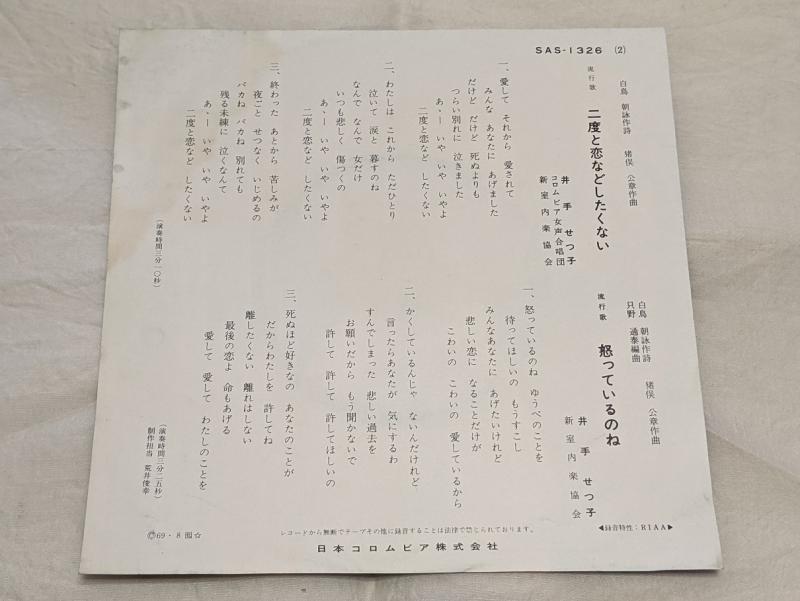 SAS-1326 (2)
白鳥 朝詠作詩 猪俣 公章作曲
流行歌 二度と恋などしたくない
井手せつ子
コロムビア女声合唱団
新室内楽協会
一、愛して それから 愛されて
みんな あなたに あげました
だけど だけど 死ぬよりも
つらい別れに 泣きました
あゝー いや いや いやよ
二度と恋など したくない
二、わたしは これから ただひとり
泣いて 涙と 暮すのね
なんで なんで 女だけ
いつも悲しく 傷つくの
あゝー いや いや いやよ
二度と恋など したくない
三、終わった あとから 苦しみが
夜ごと せつなく いじめるの
バカね バカね 別れても
残る未練に 泣くなんて
あゝー いや いや いやよ
二度と恋など したくない
(演奏時間三分一〇秒)
白鳥 朝詠作詩 猪俣 公章作曲
只野 通泰編曲
流行歌 怒っているのね
井手せつ子
新室内楽協会
一、怒っているのね ゆうべのことを
待ってほしいの もうすこし
みんなあなたに あげたいけれど
悲しい恋に なることだけが
こわいの こわいの 愛しているから
二、かくしているんじゃ ないんだけれど
言ったらあなたが 気にするわ
すんでしまった 悲しい過去を
お願いだから もう聞かないで
許して 許して 許してほしいの
三、死ぬほど好きなの あなたのことが
だからわたしを 許してね
離したくない 離れはしない
最後の恋よ 命もあげる
愛して 愛して わたしのことを
(演奏時間三分二五秒)
制作担当 荒井俊幸
レコードから無断でテープその他に録音することは法律で禁じられております。
◀録音特性:RIAA▶
Ⓒ69・8 ☆
日本コロムビア株式会社